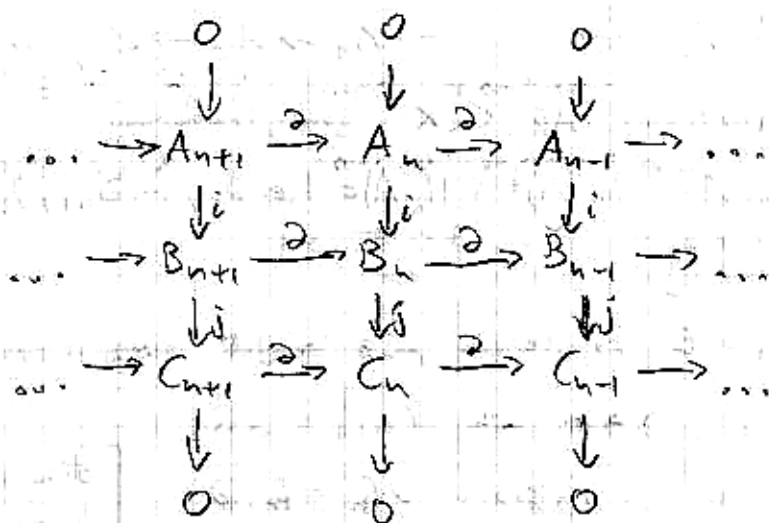 0 0 0
↓ ↓ ↓
... → A_{n+1} →∂ A_n →∂ A_{n-1} → ...
↓i ↓i ↓i
... → B_{n+1} →∂ B_n →∂ B_{n-1} → ...
↓j ↓j ↓j
... → C_{n+1} →∂ C_n →∂ C_{n-1} → ...
↓ ↓ ↓
0 0 0